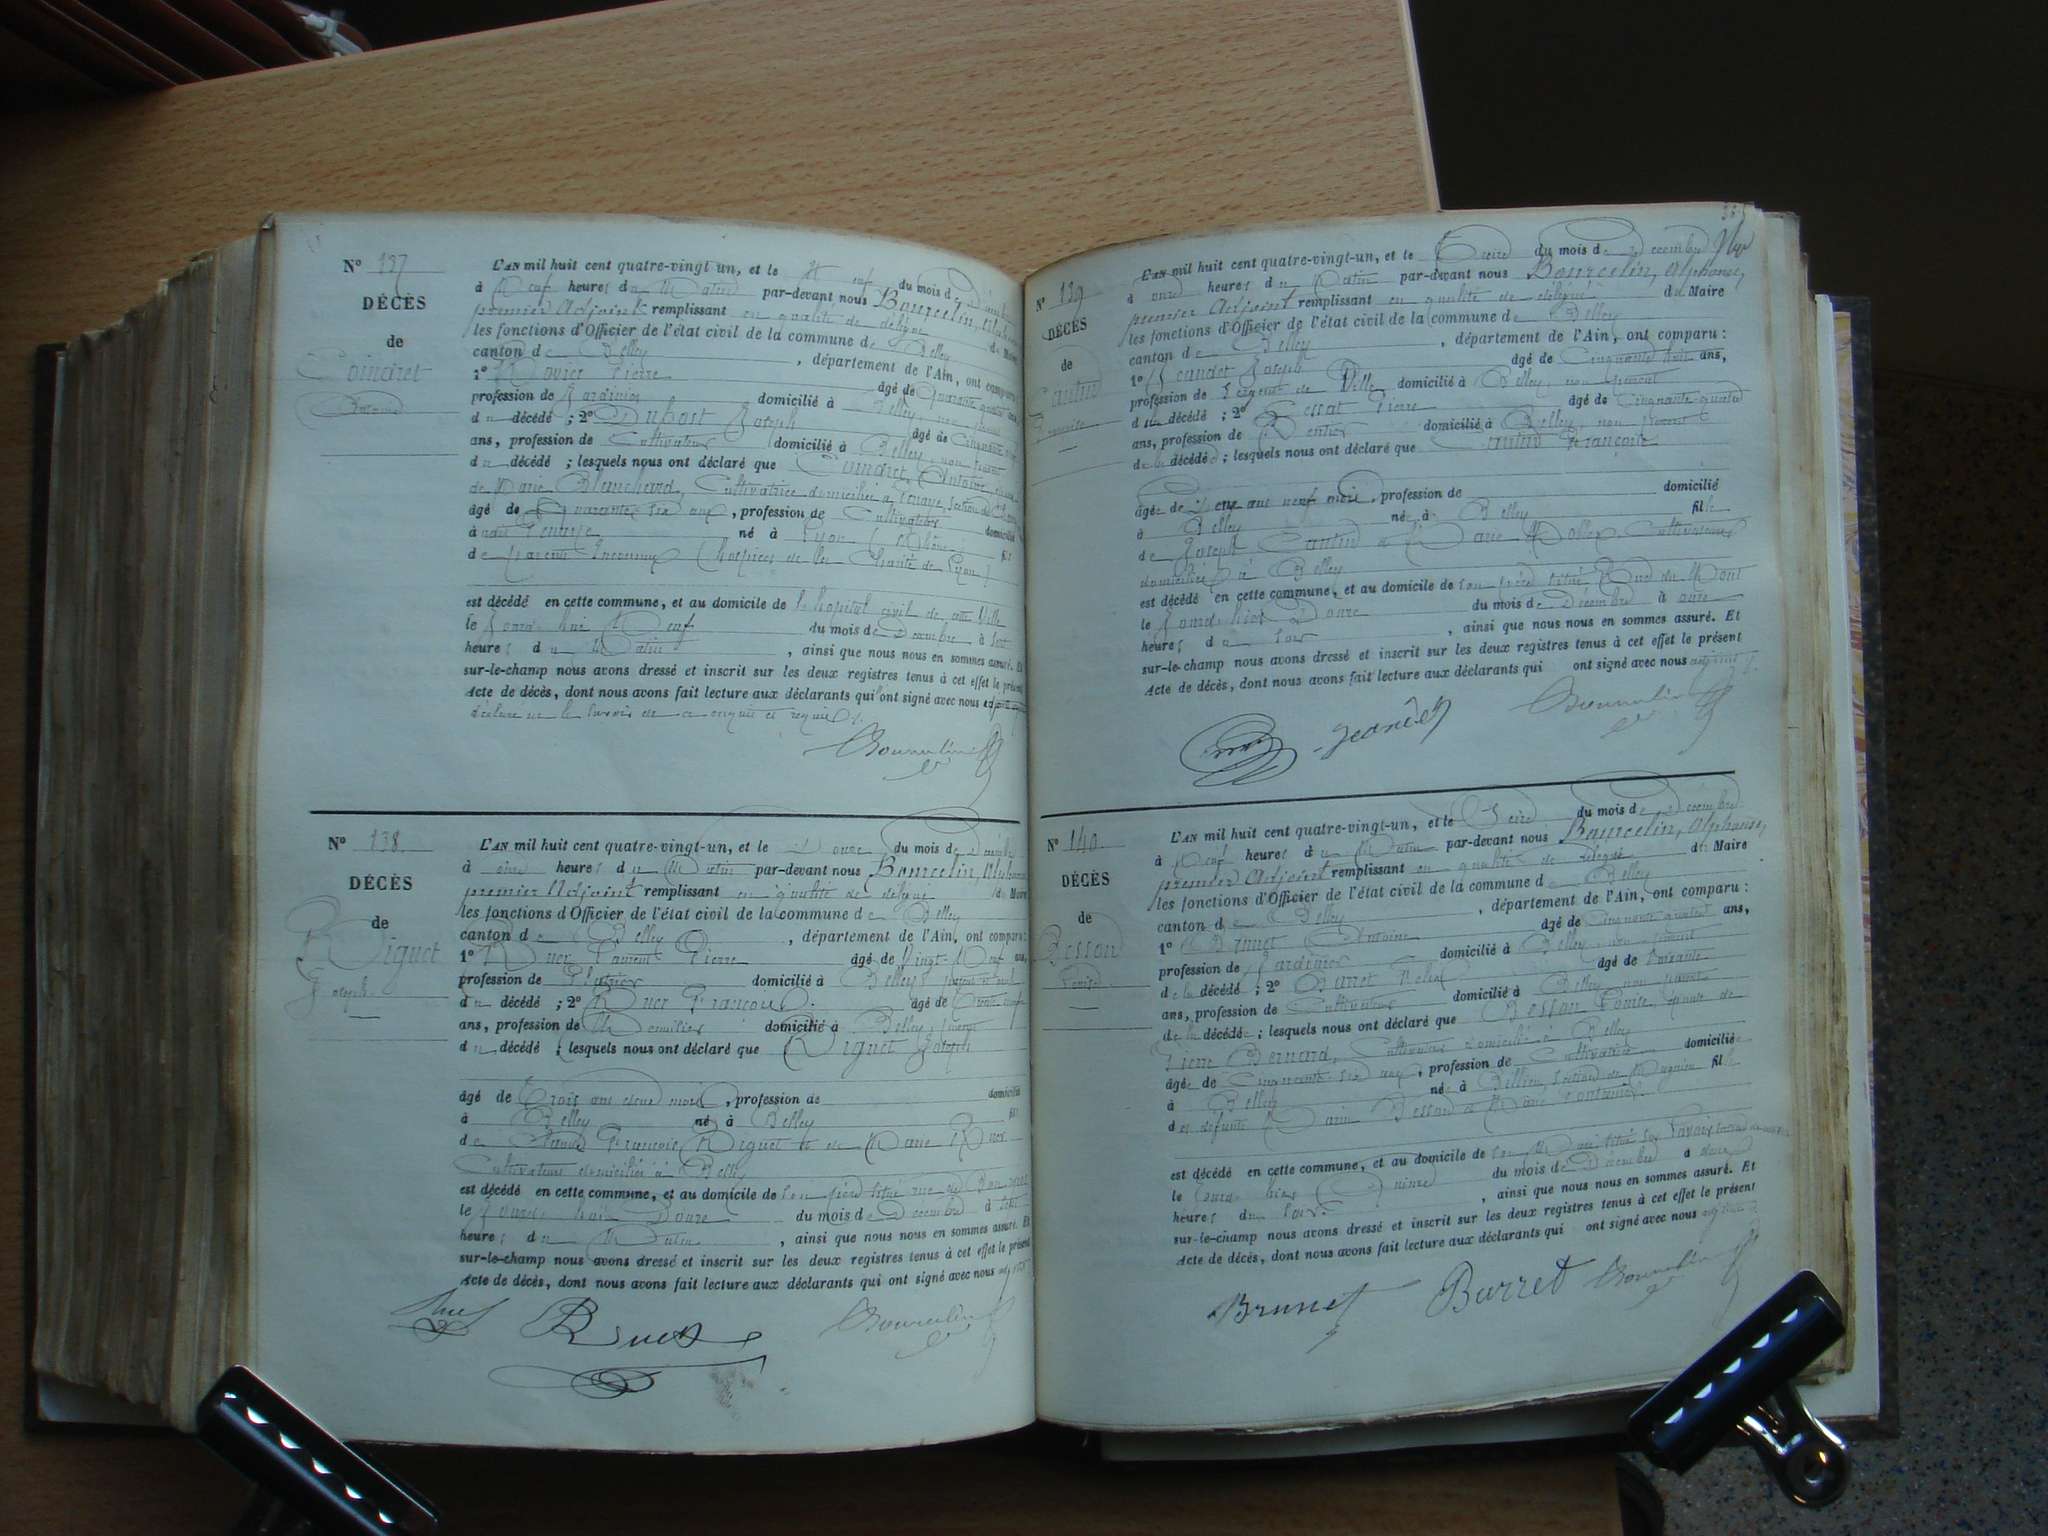 N° 137
DÉCÈS
de
Coindret
Antoine
L'AN mil huit cent quatre-vingt un, et le neuf du mois de
à Neuf heures du Matin par-devant nous Bourcelin,
premier Adjoint remplissant en qualité de délégué du Maire
les fonctions d'Officier de l'état civil de la commune de Belley
canton de Belley , département de l'Ain, ont comparu
1° Pierre âgé de Quarante quatre
profession de Jardinier domicilié à Belley
du décédé ; 2° Dubost Joseph âgé de Cinquante
ans, profession de Cultivateur domicilié à Belley non parent
du décédé ; lesquels nous ont déclaré que Coindret, Antoine
de Marie Blanchard, Cultivatrice domiciliée à
âgé de Quarante six ans , profession de Cultivateur domicilié
à né à Lyon (Rhône) fils
de parents Inconnus (hospices de la Charité de Lyon)
est décédé en cette commune, et au domicile de l'hôpital civil de cette Ville
le Jourd'hui Neuf du mois de Décembre à sept
heures du Matin , ainsi que nous nous en sommes assuré. Et
sur-le-champ nous avons dressé et inscrit sur les deux registres tenus à cet effet le présent
Acte de décès, dont nous avons fait lecture aux déclarants qui ont signé avec nous
déclaré ne le savoir de ce enquis et requis
Bourcelin
N° 138
DÉCÈS
de
Riguet
Joseph
L'AN mil huit cent quatre-vingt-un, et le Douze du mois de Décembre
à onze heures du Matin par-devant nous Bourcelin, Alphonse
premier Adjoint remplissant en qualité de délégué du Maire
les fonctions d'Officier de l'état civil de la commune de Belley
canton de Belley , département de l'Ain, ont comparu :
1° Ruet Laurent Pierre âgé de Vingt-Neuf ans,
profession de Plâtrier domicilié à Belley
du décédé ; 2° Ruet François âgé de Trente
ans, profession de domicilié à Belley
du décédé ; lesquels nous ont déclaré que Riguet Joseph
âgé de Trois ans mois , profession de domicilié
à Belley né à Belley fils
de François Riguet et de Marie Ruet
Cultivateurs domiciliés à Belley
est décédé en cette commune, et au domicile de son père situé rue
le Jourd'hui Douze du mois de Décembre à
heures du Matin , ainsi que nous nous en sommes assuré. Et
sur-le-champ nous avons dressé et inscrit sur les deux registres tenus à cet effet le présent
Acte de décès, dont nous avons fait lecture aux déclarants qui ont signé avec nous
Ruet Bourcelin
N° 139
DÉCÈS
de
Cautin
Françoise
L'AN mil huit cent quatre-vingt-un, et le Treize du mois de Décembre
à onze heures du Matin par-devant nous Bourcelin, Alphonse,
premier Adjoint remplissant en qualité de délégué du Maire
les fonctions d'Officier de l'état civil de la commune de Belley
canton de Belley , département de l'Ain, ont comparu :
1° Jeandet Joseph âgé de Cinquante ans,
profession de Sergent de Ville domicilié à Belley, non parent
de la décédée ; 2° Bessat Pierre âgé de Cinquante quatre
ans, profession de Rentier domicilié à Belley, non parent
de la décédée ; lesquels nous ont déclaré que Cautin Françoise
âgée de ans neuf mois , profession de domiciliée
à Belley née à Belley fille
de Joseph Cautin et Marie Cultivateurs
domiciliés à Belley
est décédé en cette commune, et au domicile de son père situé Rue du Mont
le Jourd'hier Douze du mois de Décembre à onze
heures du soir , ainsi que nous nous en sommes assuré. Et
sur-le-champ nous avons dressé et inscrit sur les deux registres tenus à cet effet le présent
Acte de décès, dont nous avons fait lecture aux déclarants qui ont signé avec nous adjoint
Jeandet Bourcelin
N° 140
DÉCÈS
de
Besson
Louise
L'AN mil huit cent quatre-vingt-un, et le Seize du mois de Décembre
à Neuf heures du Matin par-devant nous Bourcelin, Alphonse,
premier Adjoint remplissant en qualité de délégué du Maire
les fonctions d'Officier de l'état civil de la commune de Belley
canton de Belley , département de l'Ain, ont comparu :
1° Brunet Antoine âgé de Cinquante quatre ans,
profession de Jardinier domicilié à Belley, non parent
de la décédée ; 2° Barret âgé de soixante
ans, profession de Cultivateur domicilié à Belley non parent
de la décédée ; lesquels nous ont déclaré que Besson Louise, épouse de
Pierre Bernard, Cultivateur domicilié à Belley
âgée de Cinquante six ans , profession de Cultivatrice domiciliée
à Belley née à section de fille
des défunts Besson et Marie
est décédé en cette commune, et au domicile de son Mari situé
le Jourd'hier Quinze du mois de Décembre à
heures du soir , ainsi que nous nous en sommes assuré. Et
sur-le-champ nous avons dressé et inscrit sur les deux registres tenus à cet effet le présent
Acte de décès, dont nous avons fait lecture aux déclarants qui ont signé avec nous adjoint
Brunet Barret Bourcelin